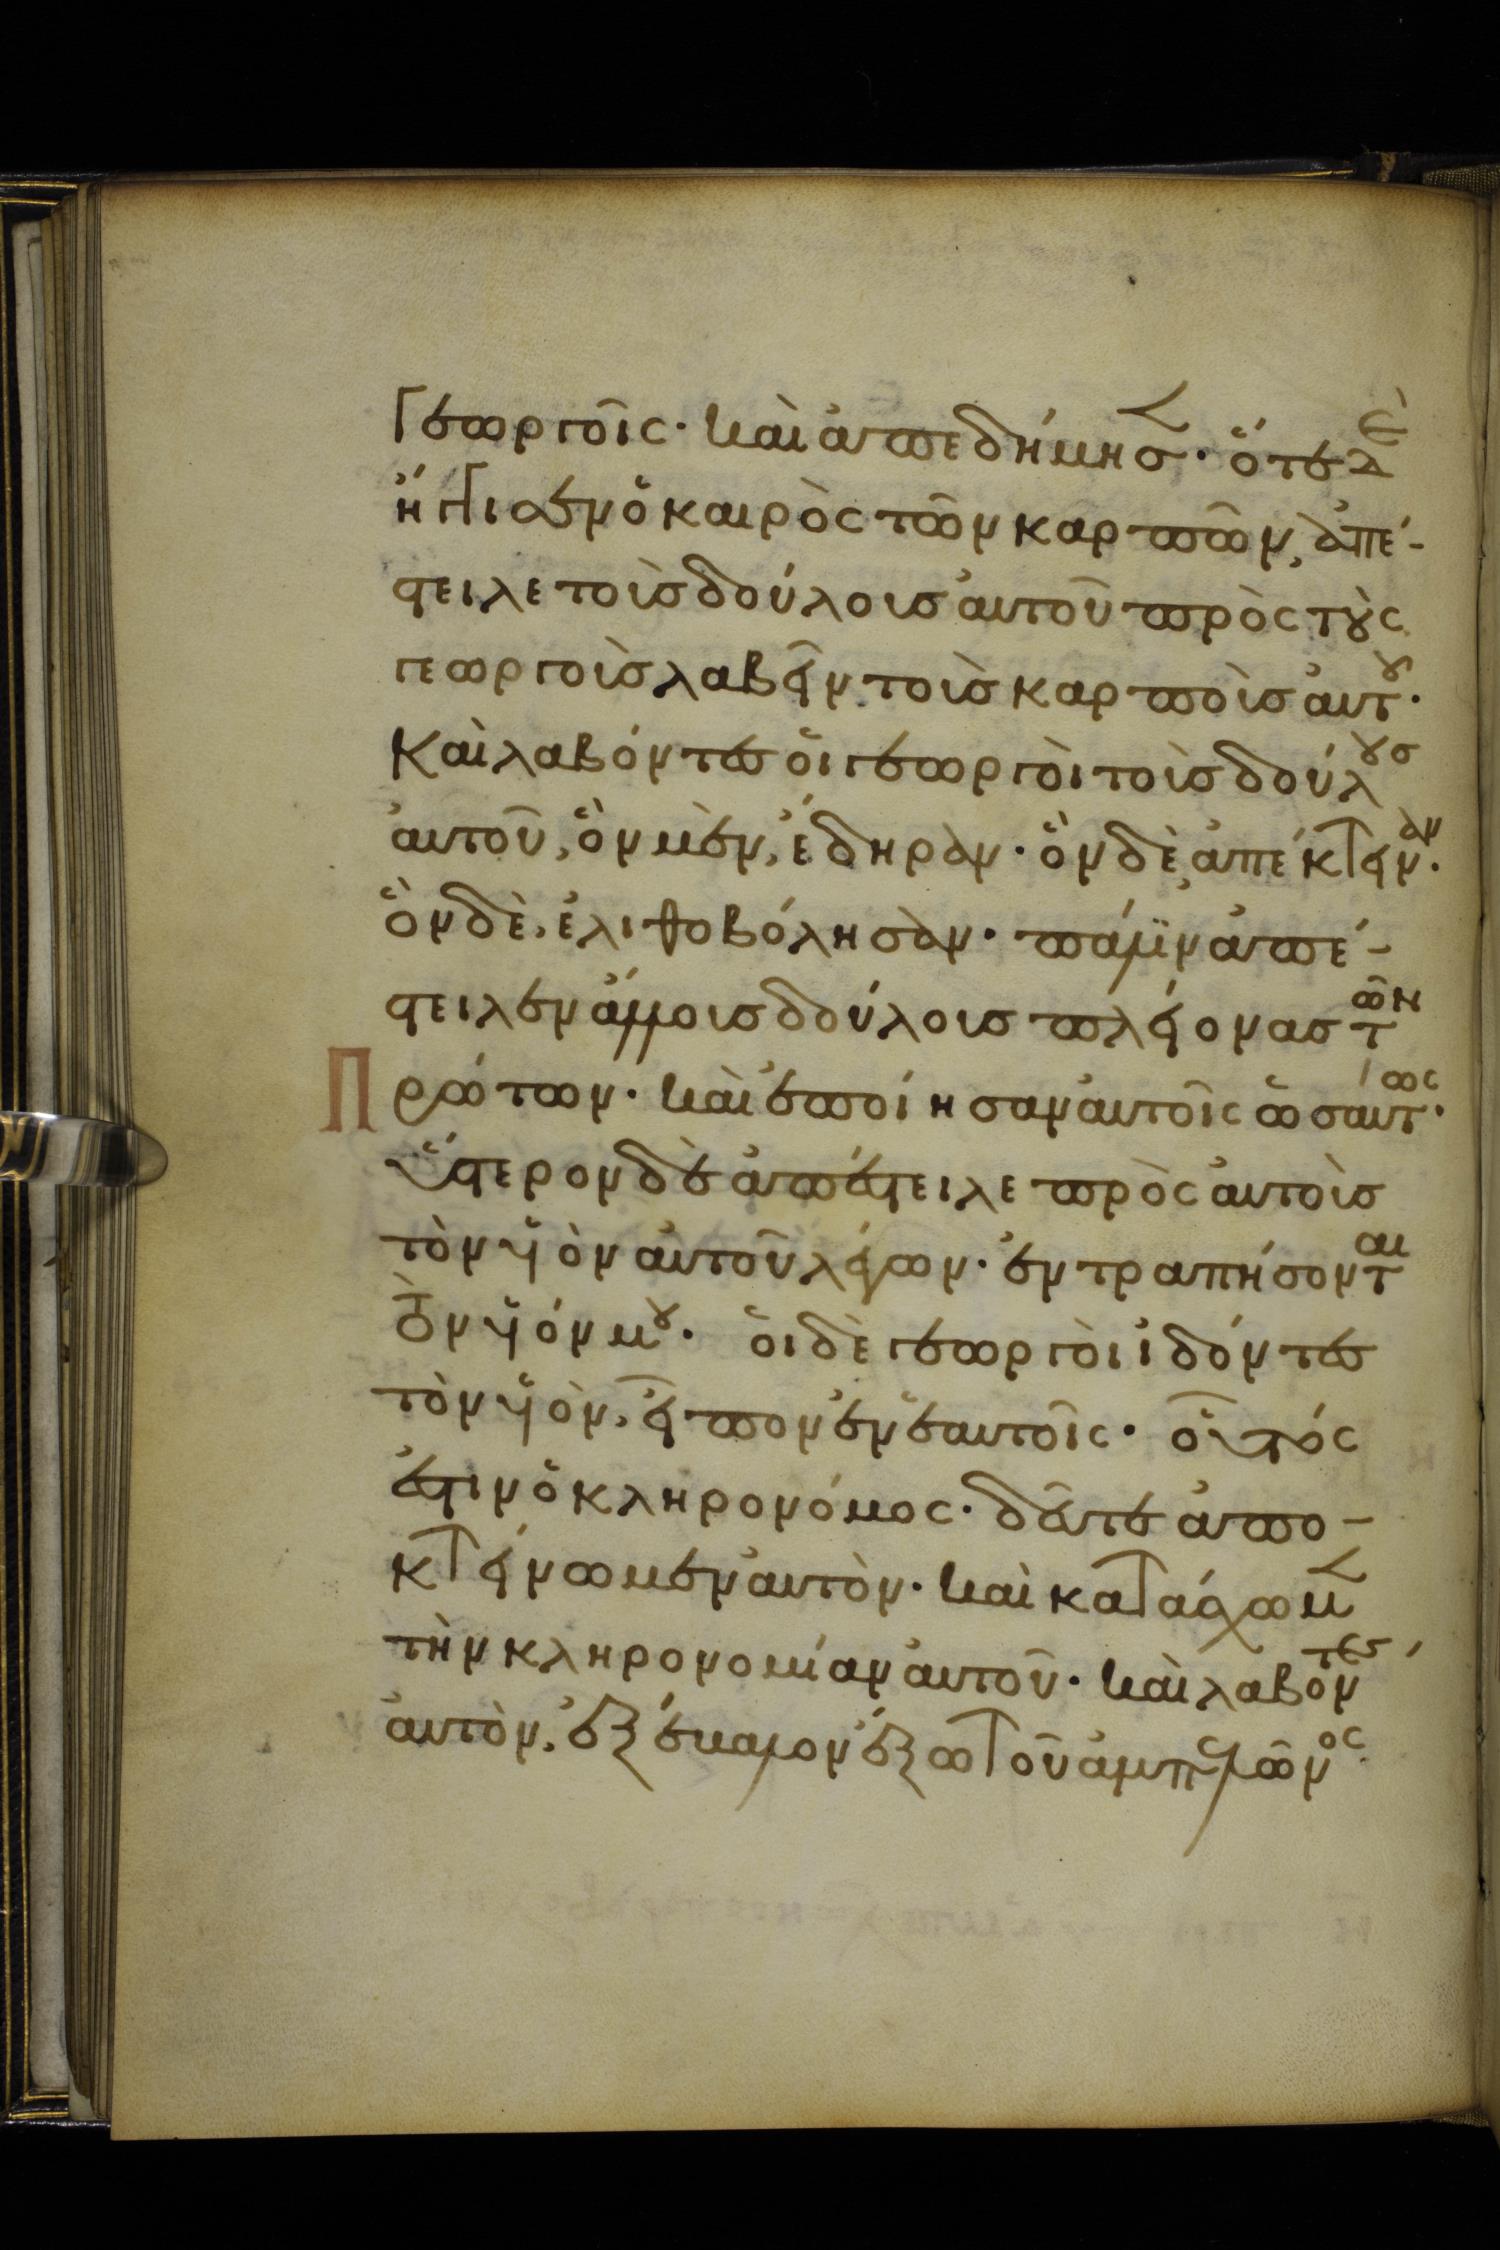 Γεωργοῖς· καὶ ἀπεδήμησ· ὅτε δὲ
ἤγγισεν ὁ καιρὸς τῶν καρπῶν, ἀπέ-
στειλε τοὺς δούλους αὐτοῦ πρὸς τοὺς
γεωργοὺς λαβεῖν τοὺς καρποὺς αὐτοῦ·
Καὶ λαβόντες οἱ γεωργοὶ τοὺς δούλους
αὐτοῦ, ὃν μὲν, ἔδηραν· ὃν δὲ, ἀπέκτειναν·
ὃν δὲ, ἐλιθοβόλησαν· πάλιν ἀπέ-
στειλεν ἄλλους δούλους πλείονας τῶν
Πρώτων· καὶ ἐποίησαν αὐτοῖς ὡσαύτως·
ὕστερον δὲ ἀπέστειλε πρὸς αὐτοὺς
τὸν υἱὸν αὐτοῦ λέγων· ἐντραπήσονται
τὸν υἱόν μου· οἱ δὲ γεωργοὶ ἰδόντες
τὸν υἱὸν, εἶπον ἐν ἑαυτοῖς· οὗτός
ἐστιν ὁ κληρονόμος· δεῦτε ἀπο-
κτείνωμεν αὐτὸν· καὶ κατάσχωμ
τὴν κληρονομίαν αὐτοῦ· καὶ λαβόντες
αὐτὸν, ἐξέβαλον ἔξω τοῦ ἀμπελῶνος.